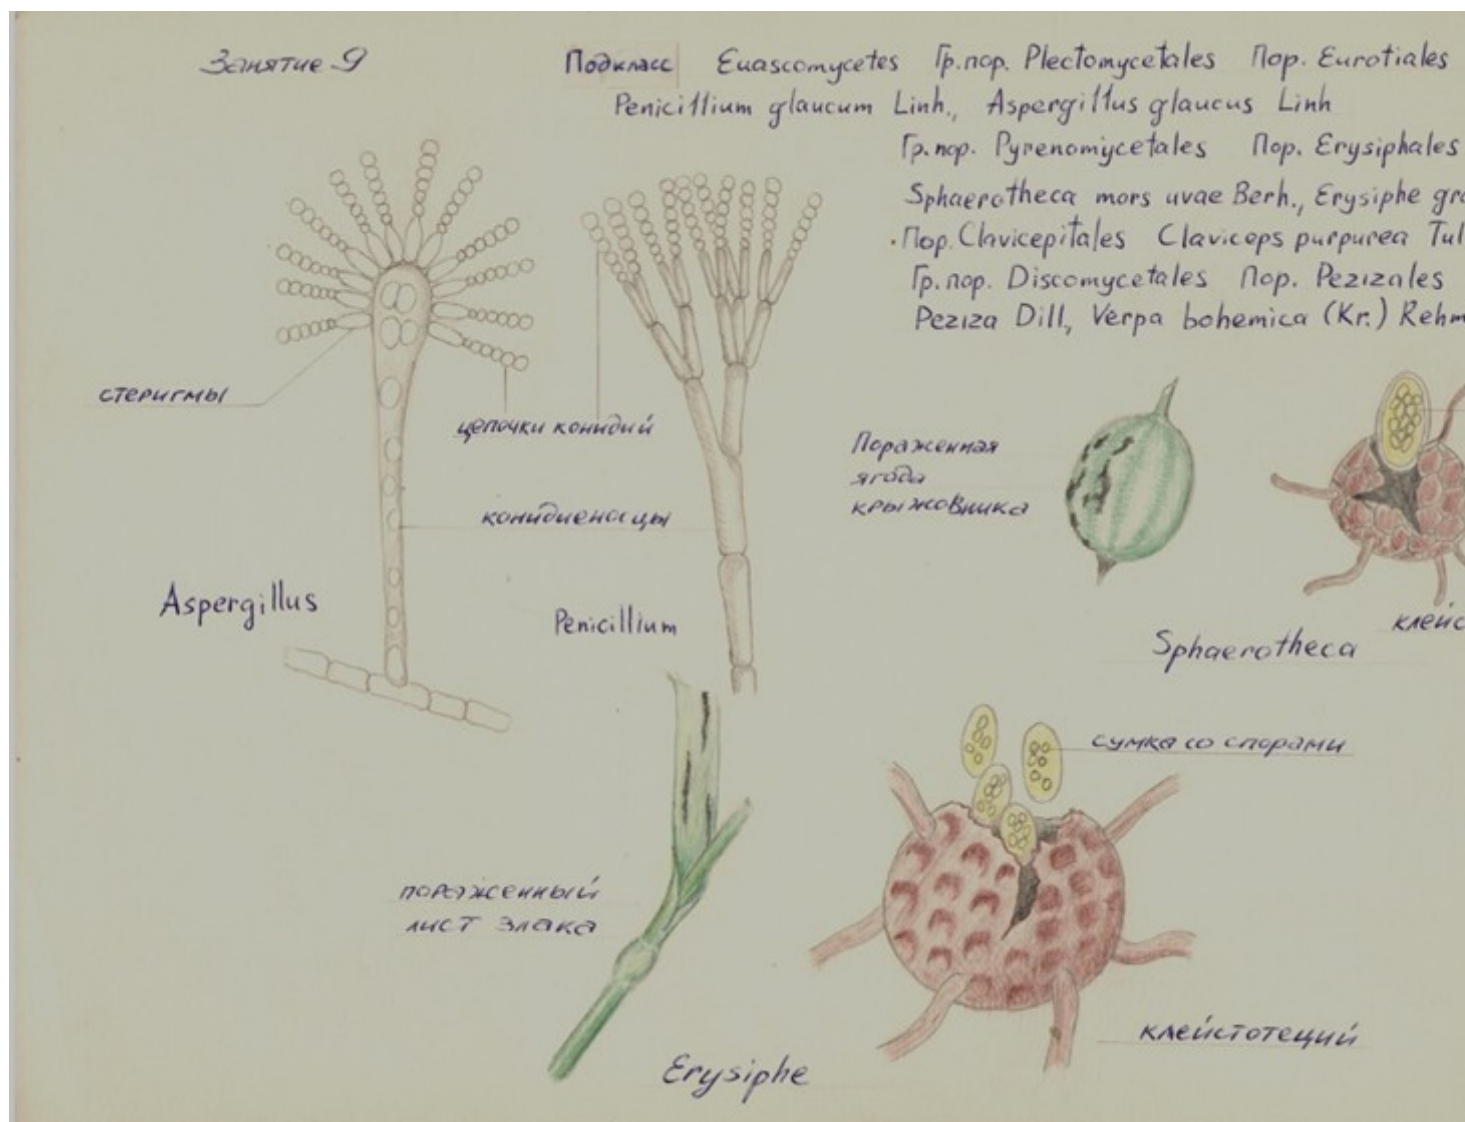 Занятие 9
Подкласс Euascomycetes Гр.пор. Plectomycetales Пор. Eurotiales
Penicillium glaucum Linh., Aspergillus glaucus Linh
Гр.пор. Pyrenomycetales Пор. Erysiphales
Sphaerotheca mors uvae Berh., Erysiphe gra
Пор. Clavicepitales Claviceps purpurea Tul
Гр.пор. Discomycetales Пор. Pezizales
Peziza Dill, Verpa bohemica (Kr.) Rehm
стеригмы
цепочки конидий
конидиеносцы
Aspergillus
Penicillium
Пораженная
ягода
крыжовника
клейс
Sphaerotheca
сумка со спорами
пораженный
лист злака
клейстотеций
Erysiphe